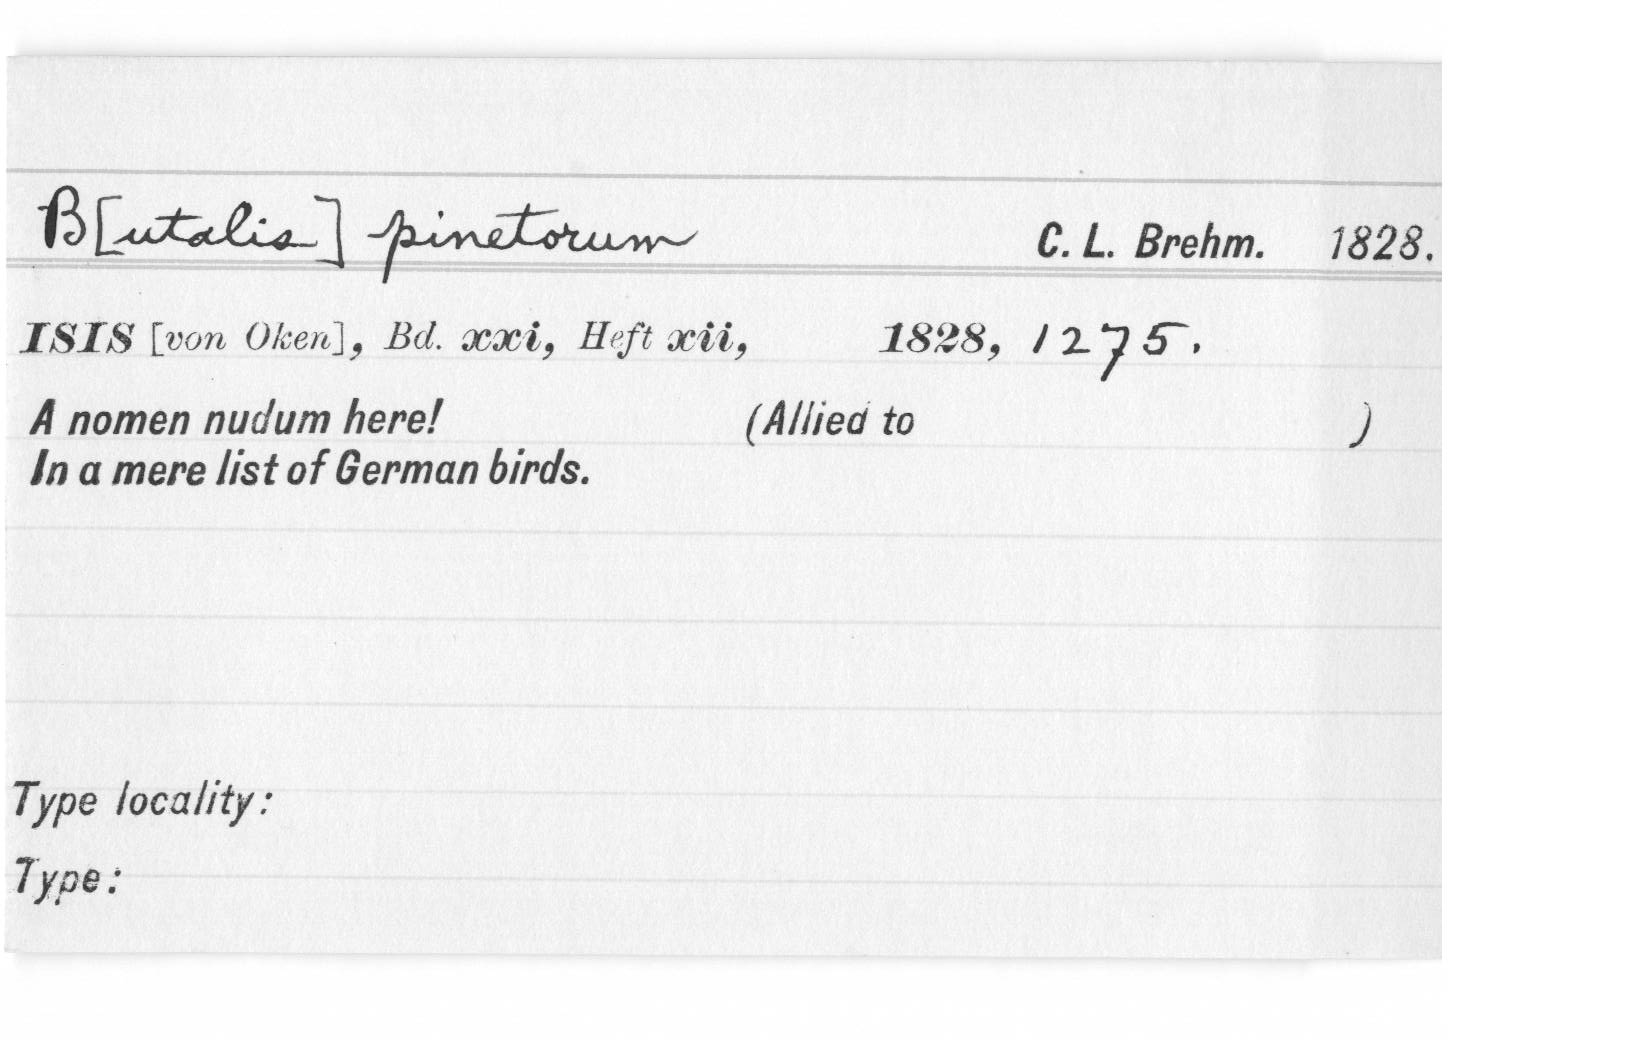 B[utalis] pinetorum C. L. Brehm. 1828.
ISIS [von Oken], Bd. xxi, Heft xii, 1828, 1275.
A nomen nudum here! (Allied to )
In a mere list of German birds.
Type locality:
Type: